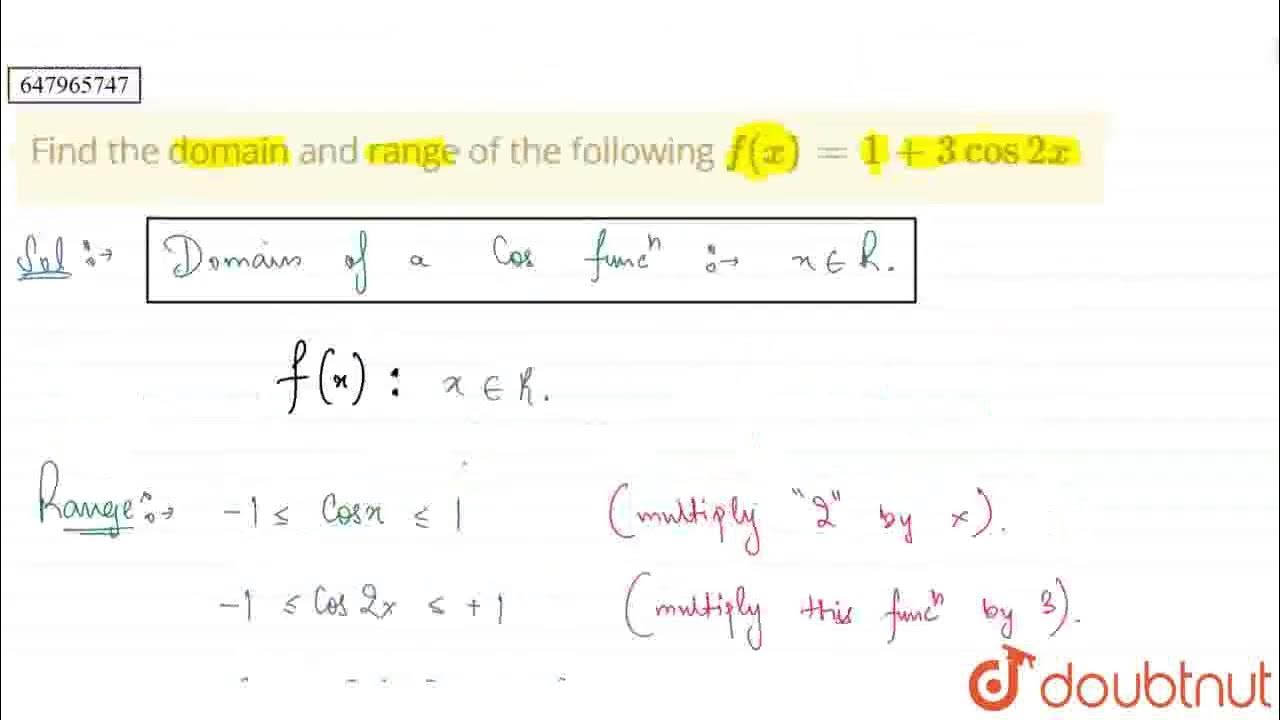 647965747
Find the domain and range of the following f(x) = 1 + 3 cos 2x
Sol :→ Domain of a Cos funcⁿ :→ x ∈ R.
f(x) : x ∈ R.
Range :→ -1 ≤ Cosx ≤ 1 (multiply "2" by x).
-1 ≤ Cos 2x ≤ +1 (multiply this funcⁿ by 3).
doubtnut